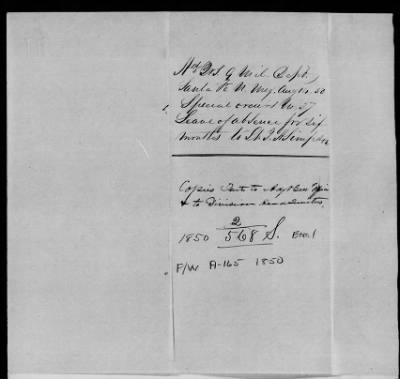 Hd Qrs. 9 Mil. Dept.
Santa Fe N. Mex. Aug 14. 50
Special orders No. 27
Leave of absence for six
months to Lt. J. H. Simpson
Copies Sent to
& to Division Head Quarters.
1850 2/568 S. Enc. 1
F/W A-165 1850